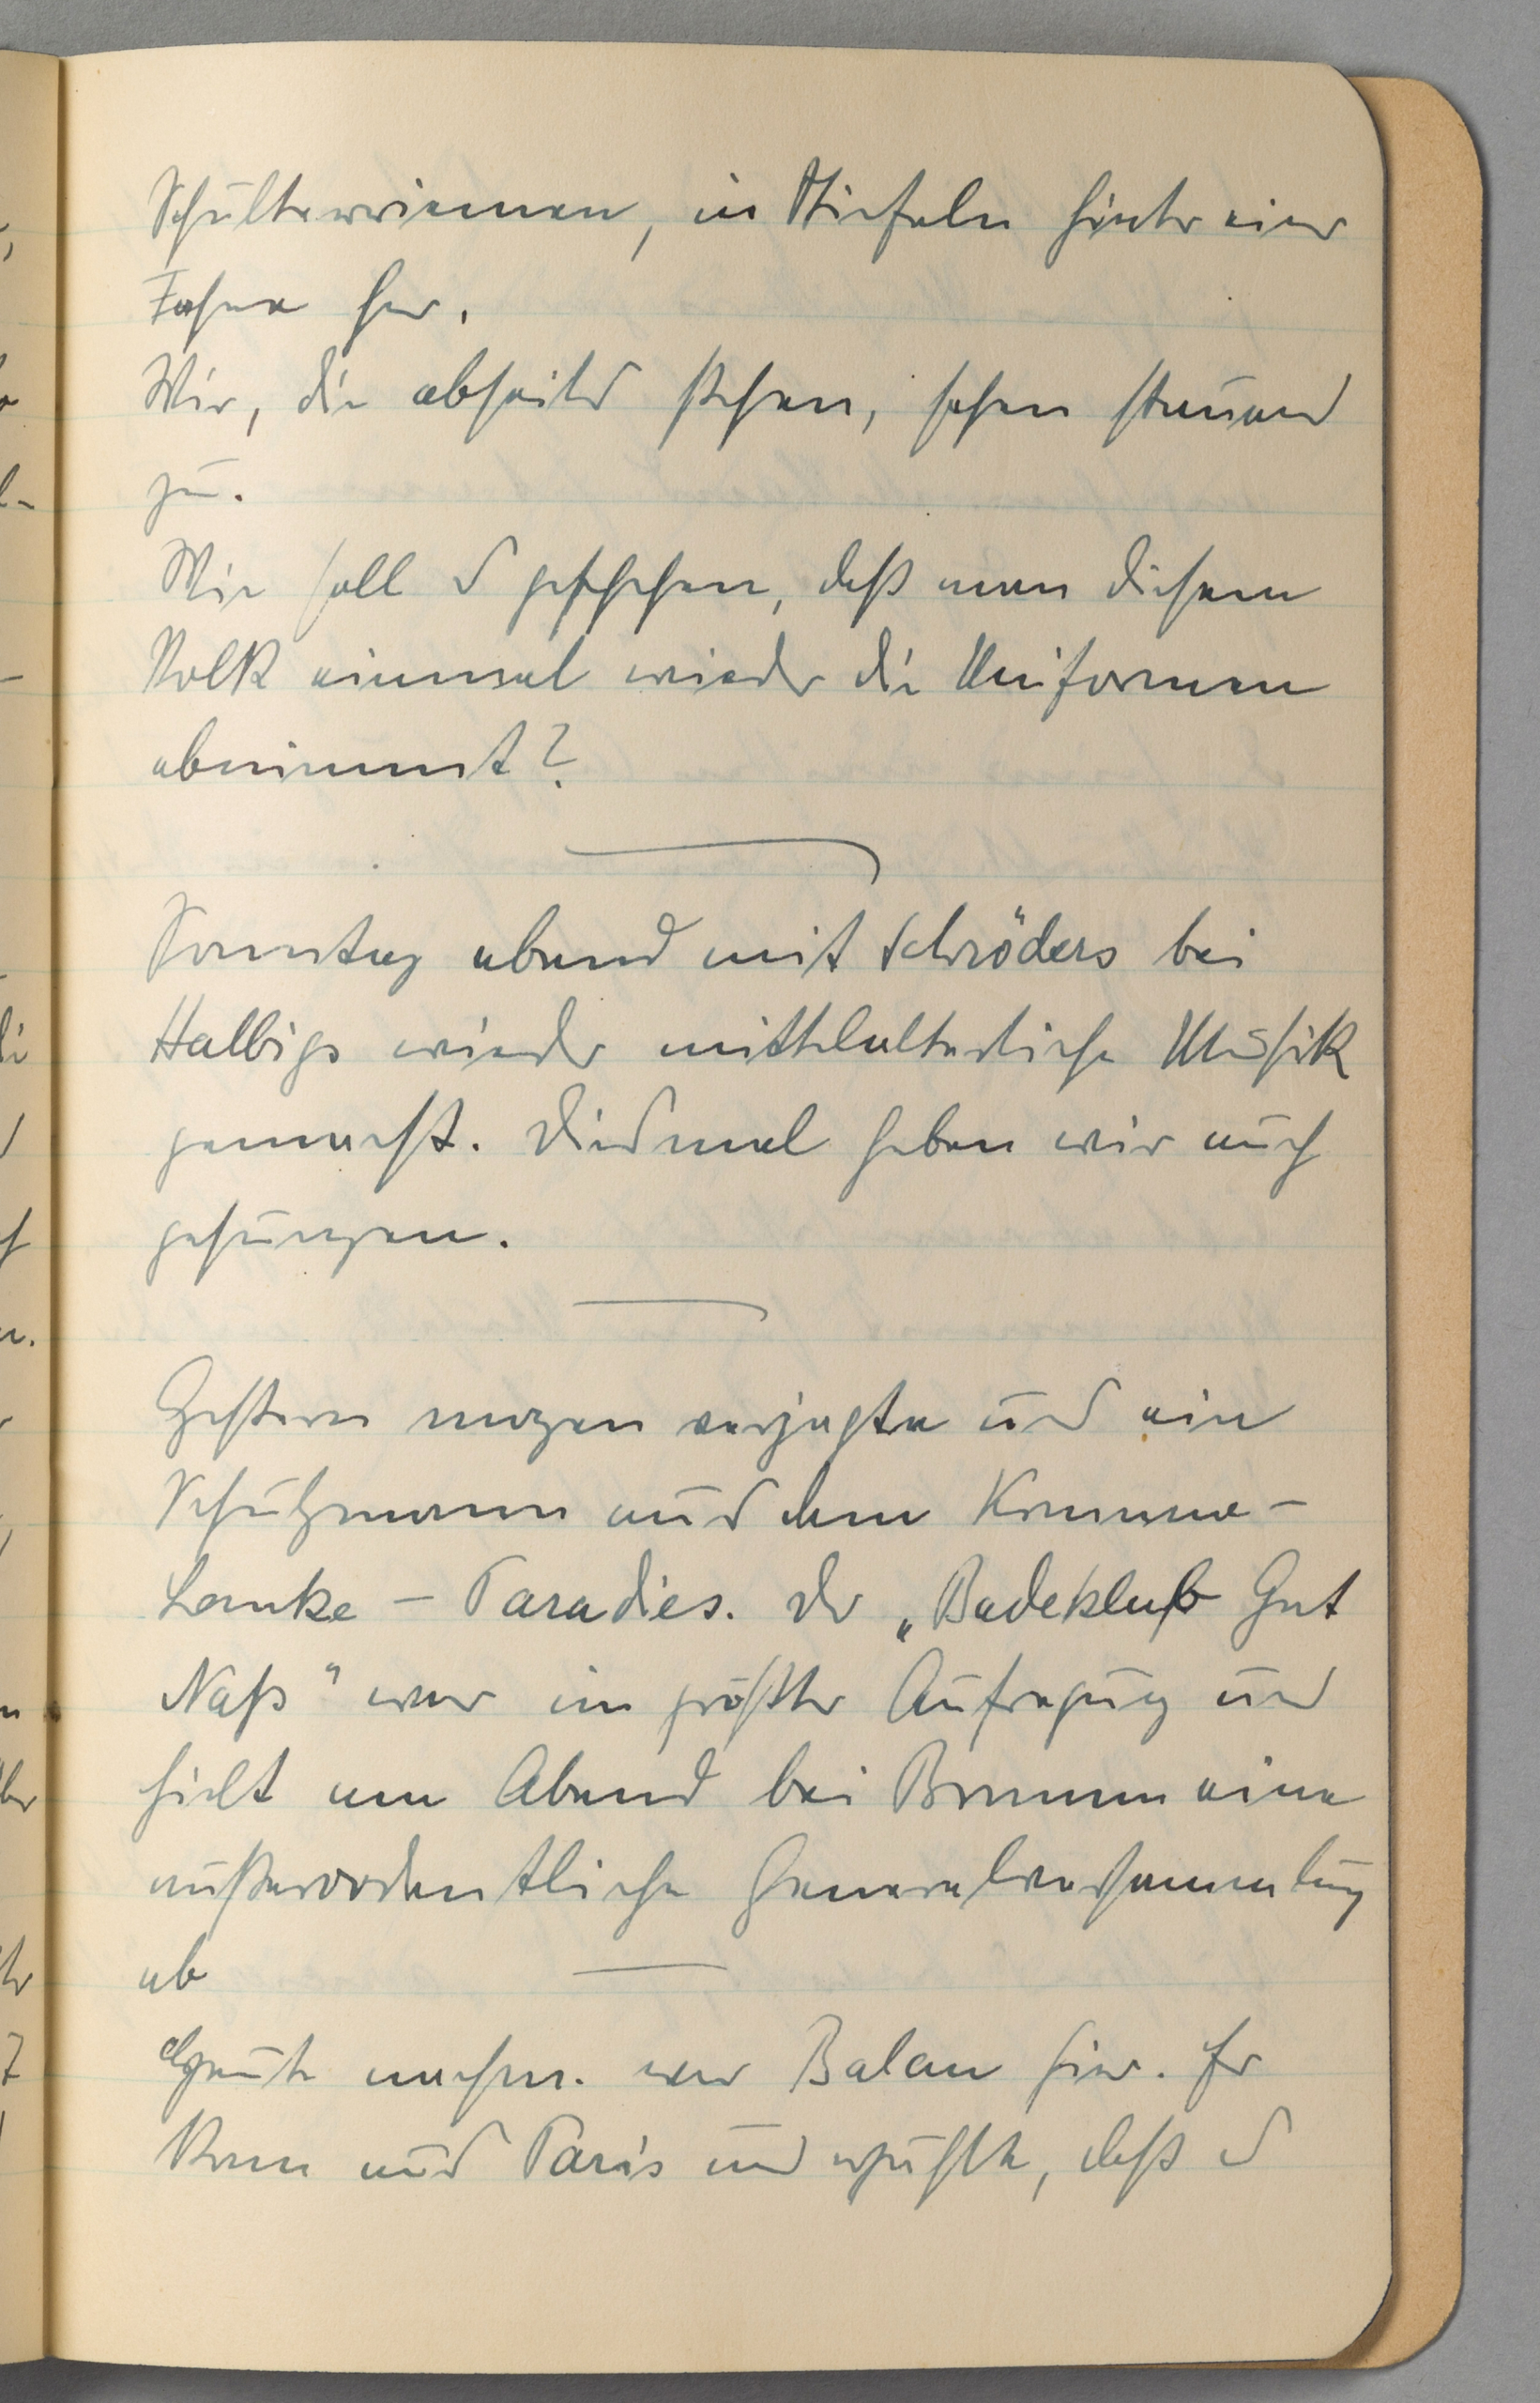 Schulterriemen, in Stiefeln hinter einer
Fahne her.
Wir, die abseits stehen, sehen staunend
zu.
Wie soll es geschehen, daß man diesem
Volk einmal wieder die Uniformen
abnimmt?
Sonntag abend mit Schröders bei
Halbigs wieder mittelalterliche Musik
gemacht. Diesmal haben wir auch
gesungen.
Gestern morgen verjagte uns ein
Schutzmann aus dem Krumme-
Lanke - Paradies. Der „Badeklub Gut
Naß" war in größter Aufregung und
hielt am Abend bei Brumm eine
außerordentliche Generalversammlung
ab
Heute nachm. war Balan hier. Er
kam aus Paris und wußte, daß es